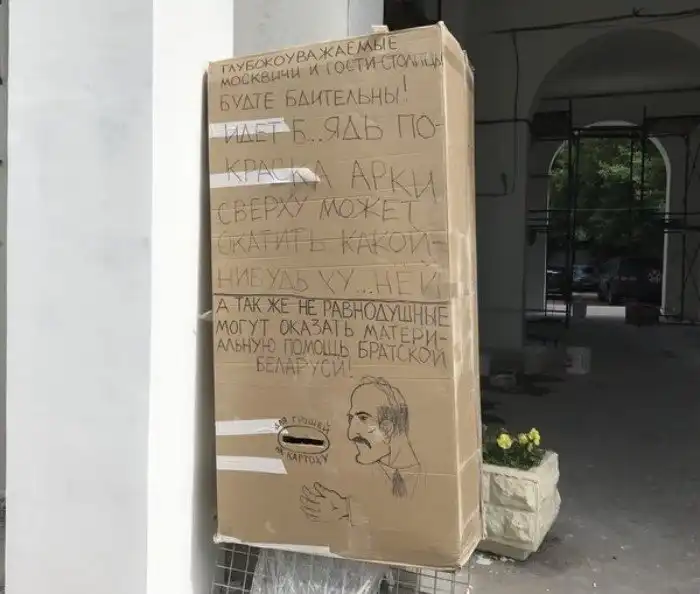 ГЛУБОКОУВАЖАЕМЫЕ
МОСКВИЧИ И ГОСТИ СТОЛИЦЫ
БУДТЕ БДИТЕЛЬНЫ!
ИДЕТ Б..ЯДЬ ПО-
КРАСКА АРКИ
СВЕРХУ МОЖЕТ
ОКАТИТЬ КАКОЙ-
НИБУДЬ ХУ...НЕЙ
А ТАК ЖЕ НЕ РАВНОДУШНЫЕ
МОГУТ ОКАЗАТЬ МАТЕРИ-
АЛЬНУЮ ПОМОЩЬ БРАТСКОЙ
БЕЛАРУСИ!
ДЛЯ ГРОШЕЙ
НА КАРТОХУ